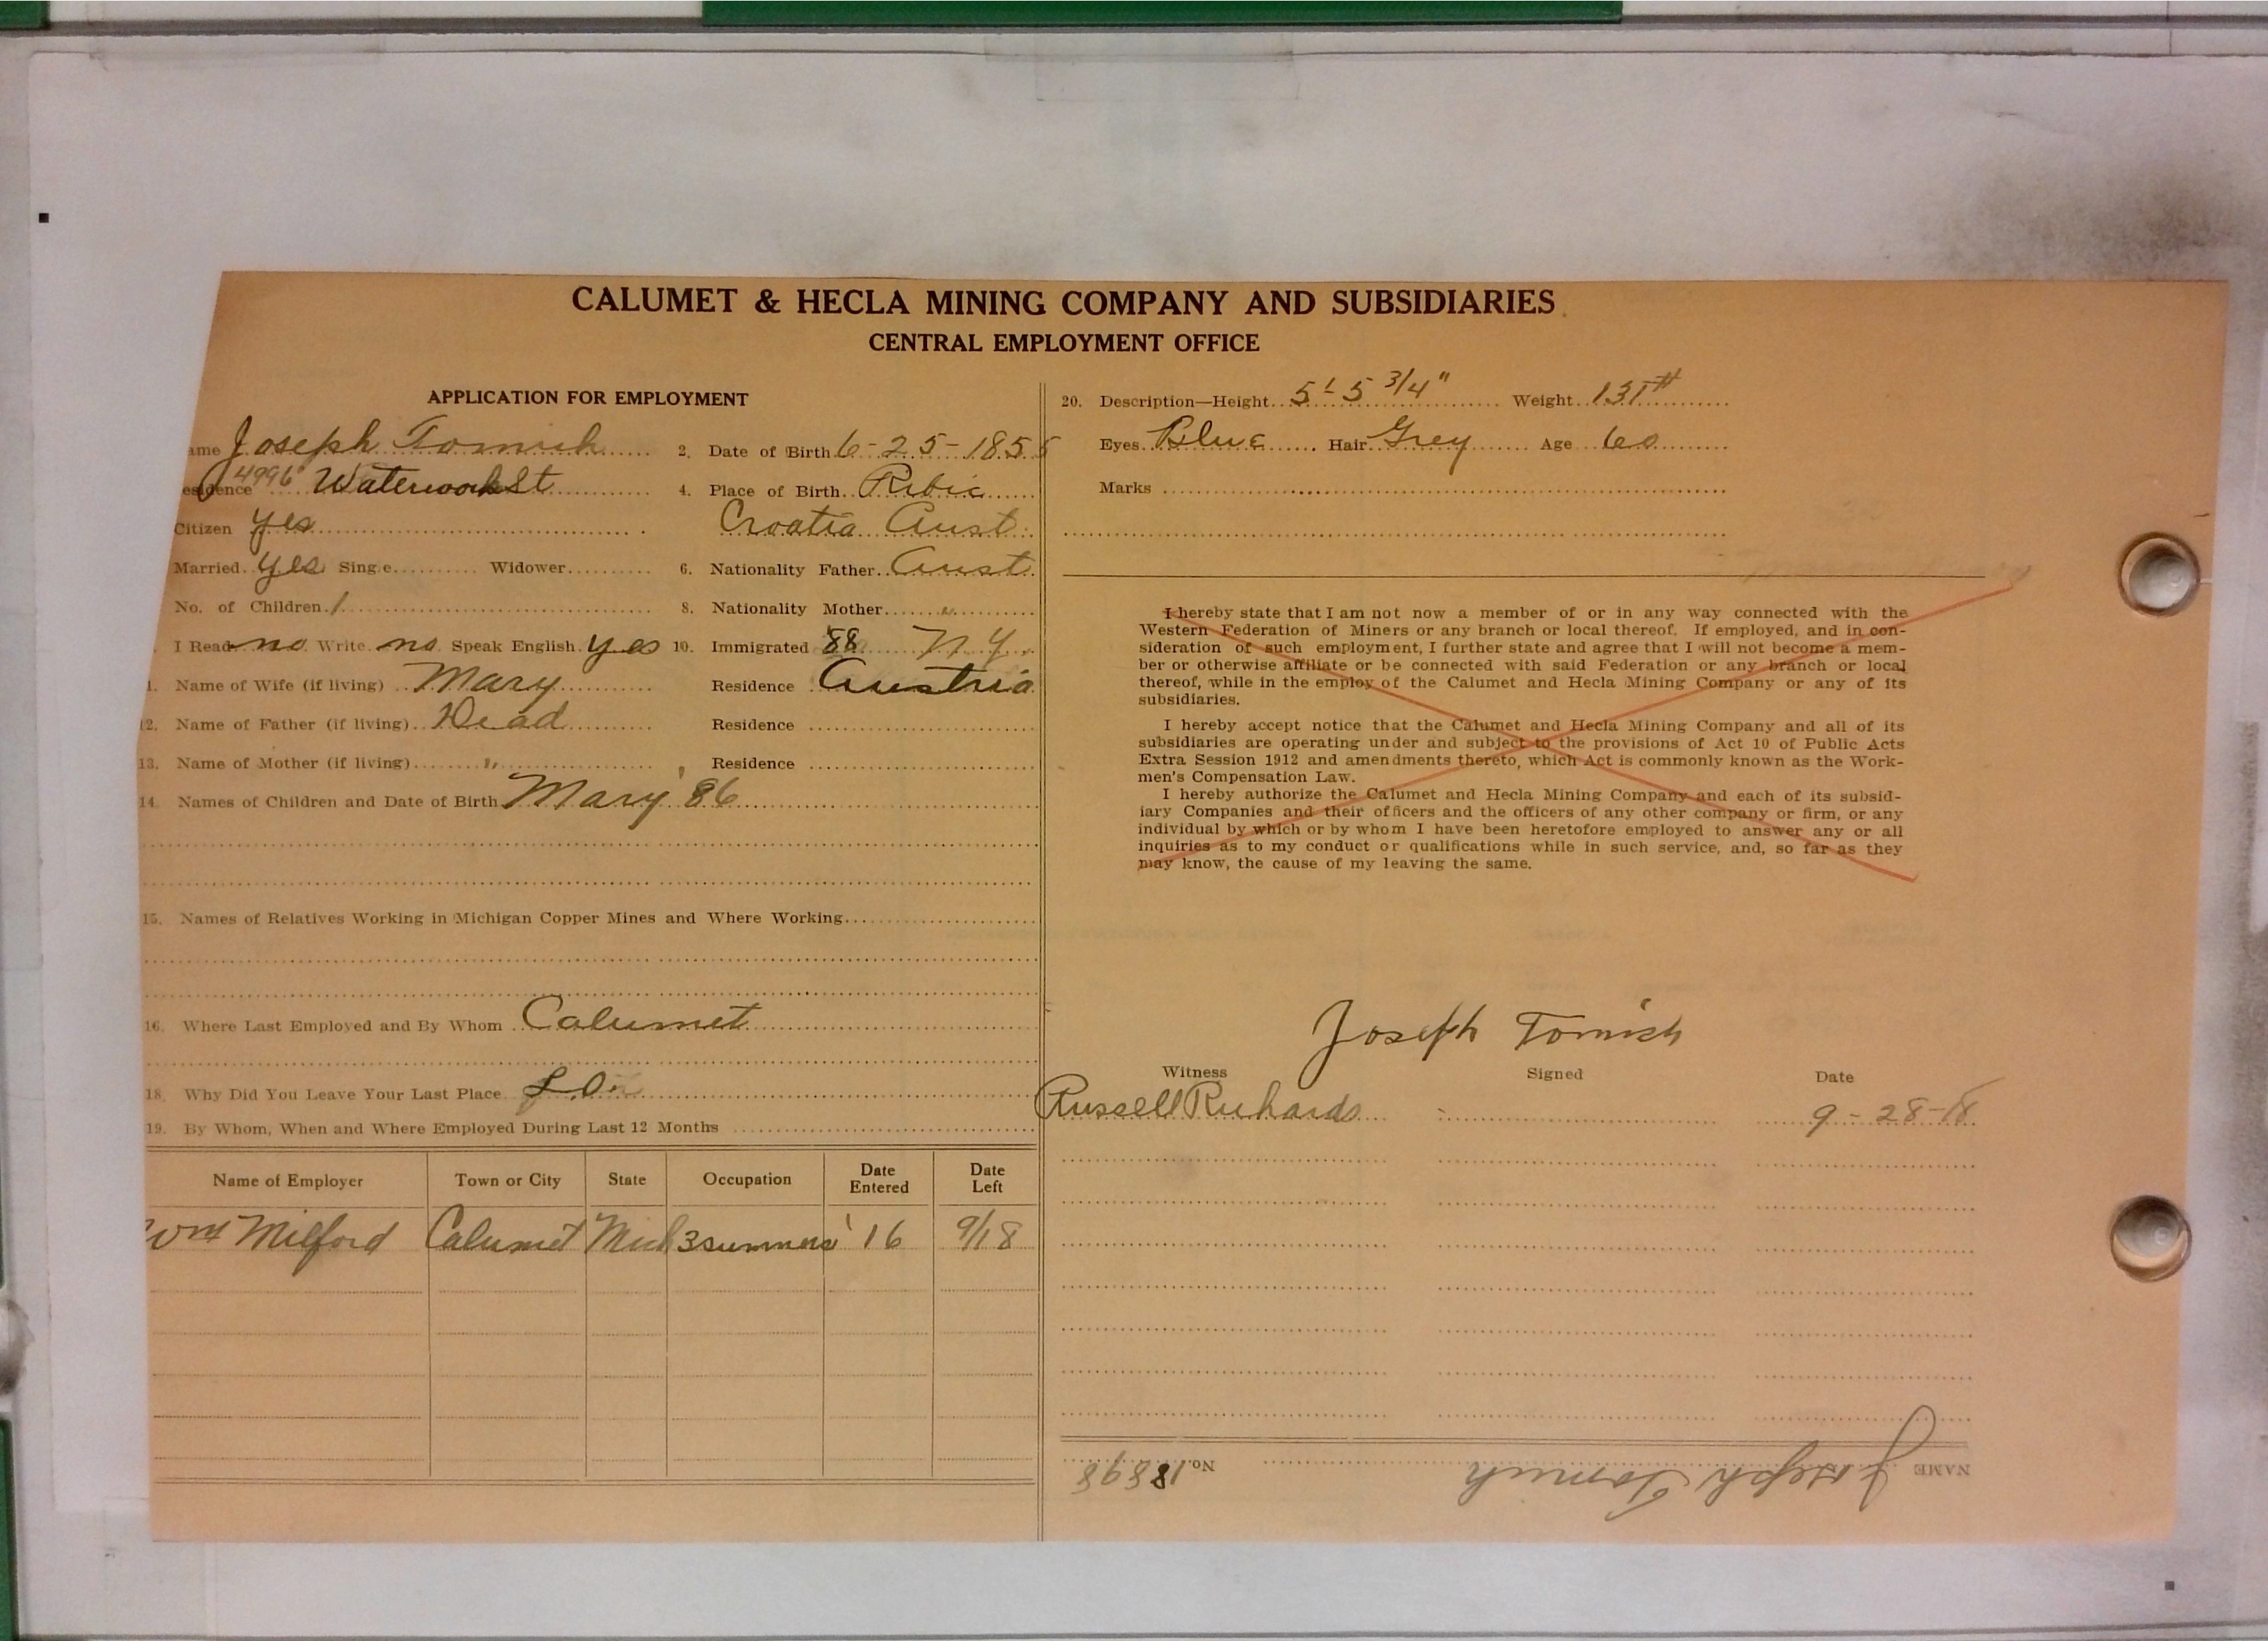 CALUMET & HECLA MINING COMPANY AND SUBSIDIARIES
CENTRAL EMPLOYMENT OFFICE
APPLICATION FOR EMPLOYMENT
ame Joseph Tomich 2. Date of Birth 6-25-1855
esidence 4996 Waterwork St 4. Place of Birth Ribic
Citizen yes Croatia Aust
Married yes Single Widower 6. Nationality Father Aust
No. of Children 1 8. Nationality Mother "
I Read no Write no Speak English yes 10. Immigrated 88 N.Y.
1. Name of Wife (if living) Mary Residence Austria
12. Name of Father (if living) Dead Residence
13. Name of Mother (if living) " Residence
14. Names of Children and Date of Birth Mary '86
15. Names of Relatives Working in Michigan Copper Mines and Where Working
16. Where Last Employed and By Whom Calumet
18. Why Did You Leave Your Last Place
19. By Whom, When and Where Employed During Last 12 Months
Name of Employer Town or City State Occupation Date Entered Date Left
Wm Milford Calumet Mich 3 summers '16 9/18
20. Description—Height 5'-5 3/4" Weight 131#
Eyes Blue Hair Grey Age 60
Marks
I hereby state that I am not now a member of or in any way connected with the
Western Federation of Miners or any branch or local thereof. If employed, and in con-
sideration of such employment, I further state and agree that I will not become a mem-
ber or otherwise affiliate or be connected with said Federation or any branch or local
thereof, while in the employ of the Calumet and Hecla Mining Company or any of its
subsidiaries.
I hereby accept notice that the Calumet and Hecla Mining Company and all of its
subsidiaries are operating under and subject to the provisions of Act 10 of Public Acts
Extra Session 1912 and amendments thereto, which Act is commonly known as the Work-
men's Compensation Law.
I hereby authorize the Calumet and Hecla Mining Company and each of its subsid-
iary Companies and their officers and the officers of any other company or firm, or any
individual by which or by whom I have been heretofore employed to answer any or all
inquiries as to my conduct or qualifications while in such service, and, so far as they
may know, the cause of my leaving the same.
Joseph Tomich
Witness Signed Date
Russell Richards 9-28-18
NAME Joseph Tomich No. 18898